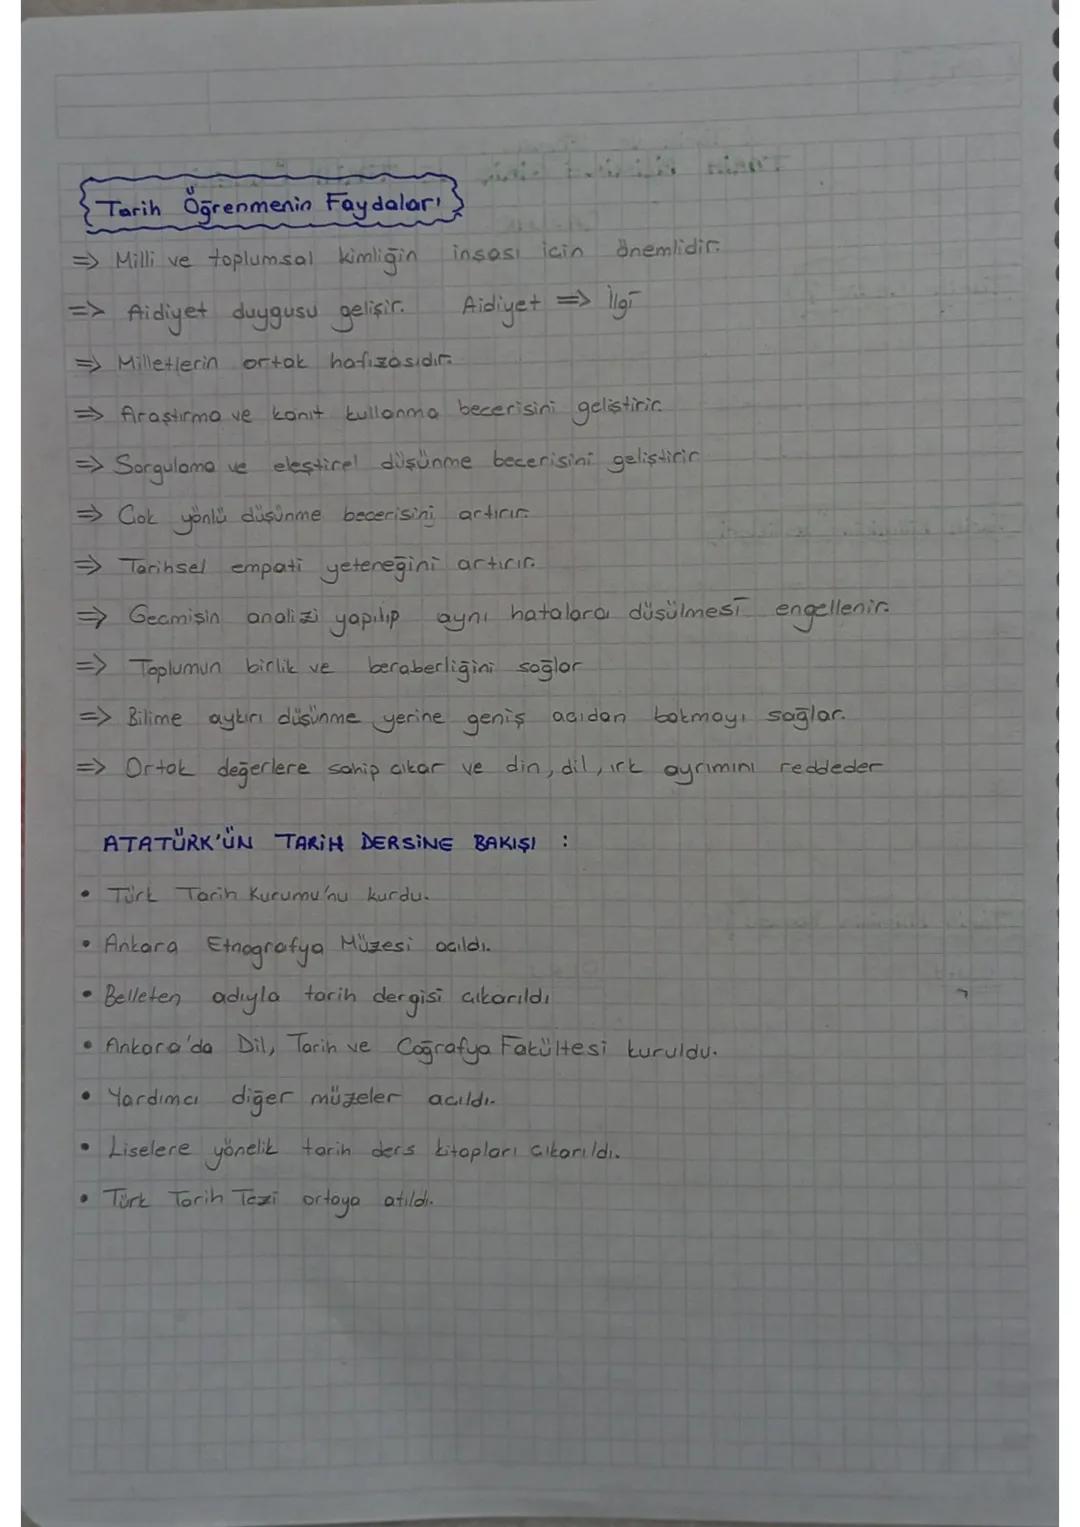 Tarih Öğrenmenin Faydaları
=> Milli ve toplumsal kimliğin inşası için önemlidir.
=> Aidiyet duygusu gelişir. Aidiyet => İlgi
=> Milletlerin ortak hafızasıdır.
=> Araştırma ve kanıt kullanma becerisini geliştirir.
=> Sorgulama ve eleştirel düşünme becerisini geliştirir
=> Çok yönlü düşünme becerisini artırır.
=> Tarihsel empati yeteneğini artırır.
=> Geçmişin analizi yapılıp aynı hatalara düşülmesi engellenir.
=> Toplumun birlik ve beraberliğini sağlar
=> Bilime aykırı düşünme yerine geniş açıdan bakmayı sağlar.
=> Ortak değerlere sahip çıkar ve din, dil, ırk ayrımını reddeder
ATATÜRK'ÜN TARİH DERSİNE BAKIŞI :
• Türk Tarih Kurumu'nu kurdu.
• Ankara Etnografya Müzesi açıldı.
• Belleten adıyla tarih dergisi çıkarıldı
• Ankara'da Dil, Tarih ve Coğrafya Fakültesi kuruldu.
• Yardımcı diğer müzeler açıldı.
• Liselere yönelik tarih ders kitapları çıkarıldı.
• Türk Tarih Tezi ortaya atıldı.